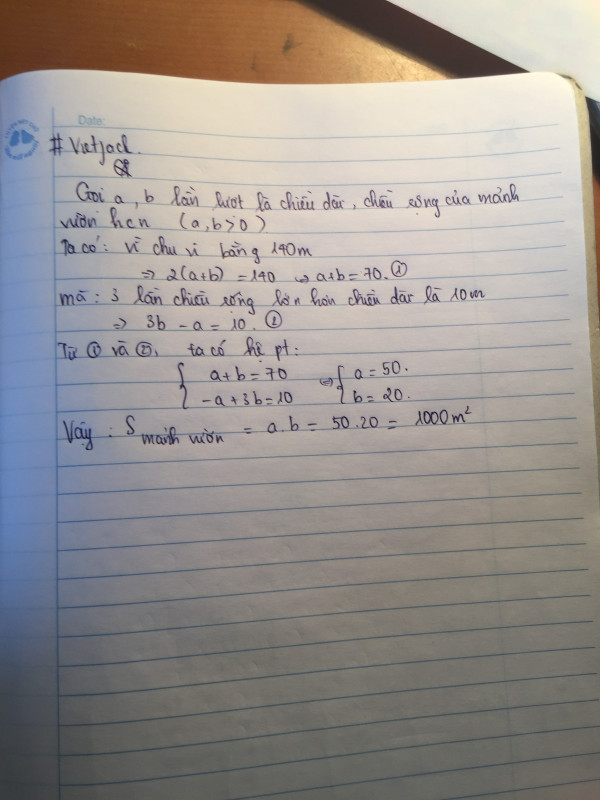 Date:
# Vietjack.
Gọi a, b lần lượt là chiều dài, chiều rộng của mảnh
vườn hcn (a, b > 0)
Ta có: Vì chu vi bằng 140m
=> 2(a+b) = 140 => a+b = 70. ①
mà: 3 lần chiều rộng lớn hơn chiều dài là 10m
=> 3b - a = 10. ②
Từ ① và ②, ta có hệ pt:
{ a+b = 70 => { a = 50.
-a+3b = 10 b = 20.
Vậy: S mảnh vườn = a.b = 50.20 = 1000m²